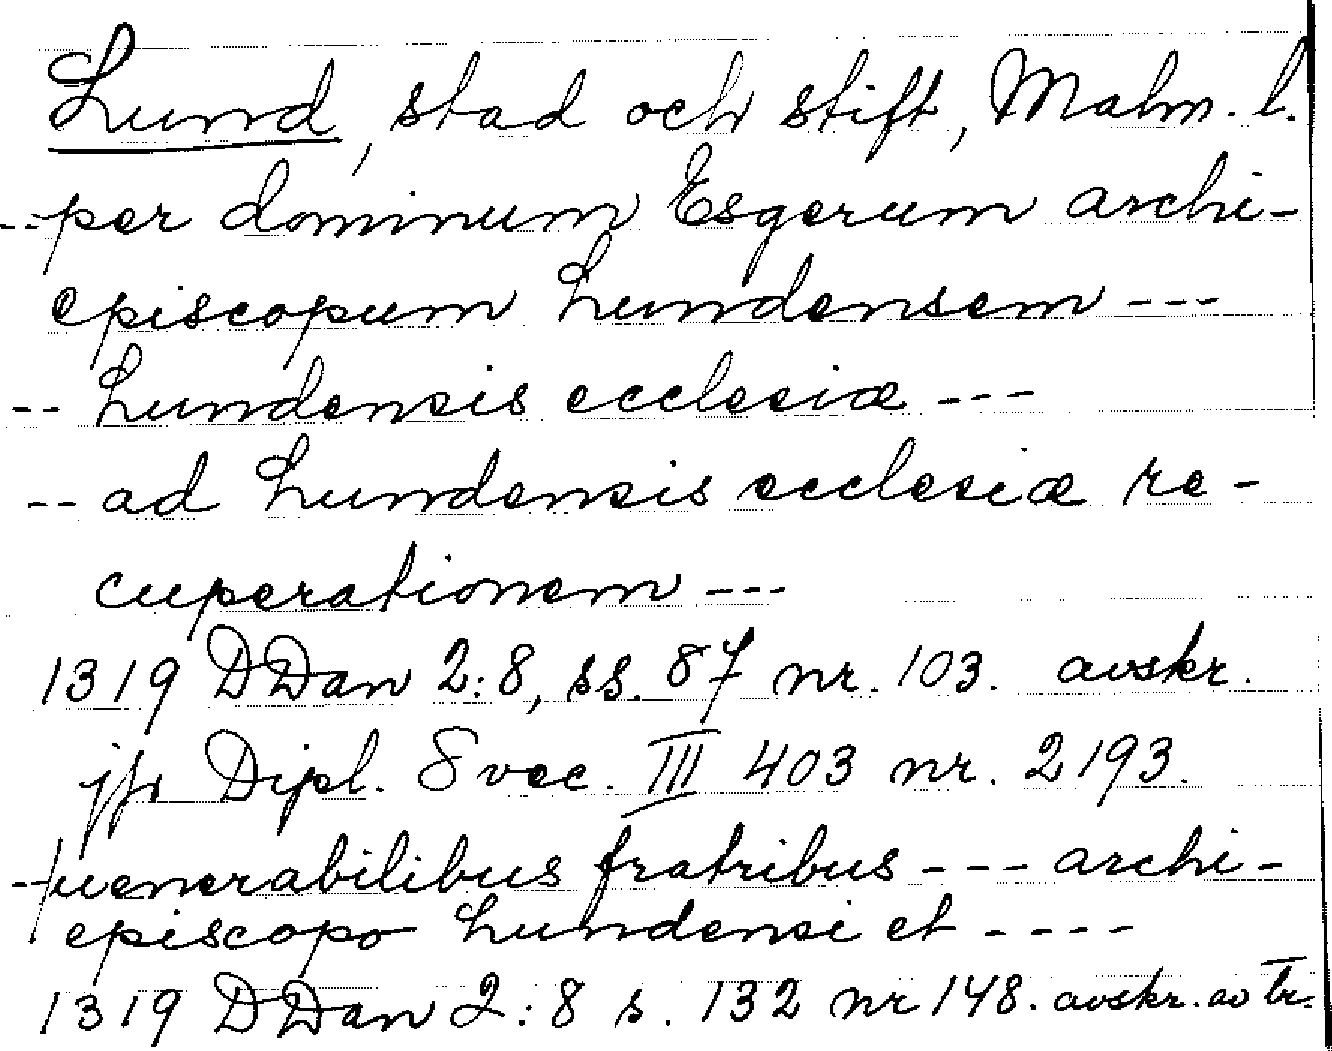 Lund, stad och stift, Malm. l.
-- per dominum Esgerum archi-
episcopum Lundensem ---
-- Lundensis ecclesiæ ---
-- ad Lundensis ecclesiæ re-
cuperationem ---
1319 DDan 2:8, ss. 87 nr. 103. avskr.
jfr Dipl. Svec. III 403 nr. 2193.
-- venerabilibus fratribus --- archi-
episcopo Lundensi et ----
1319 DDan 2:8 s. 132 nr 148. avskr. av Tr.